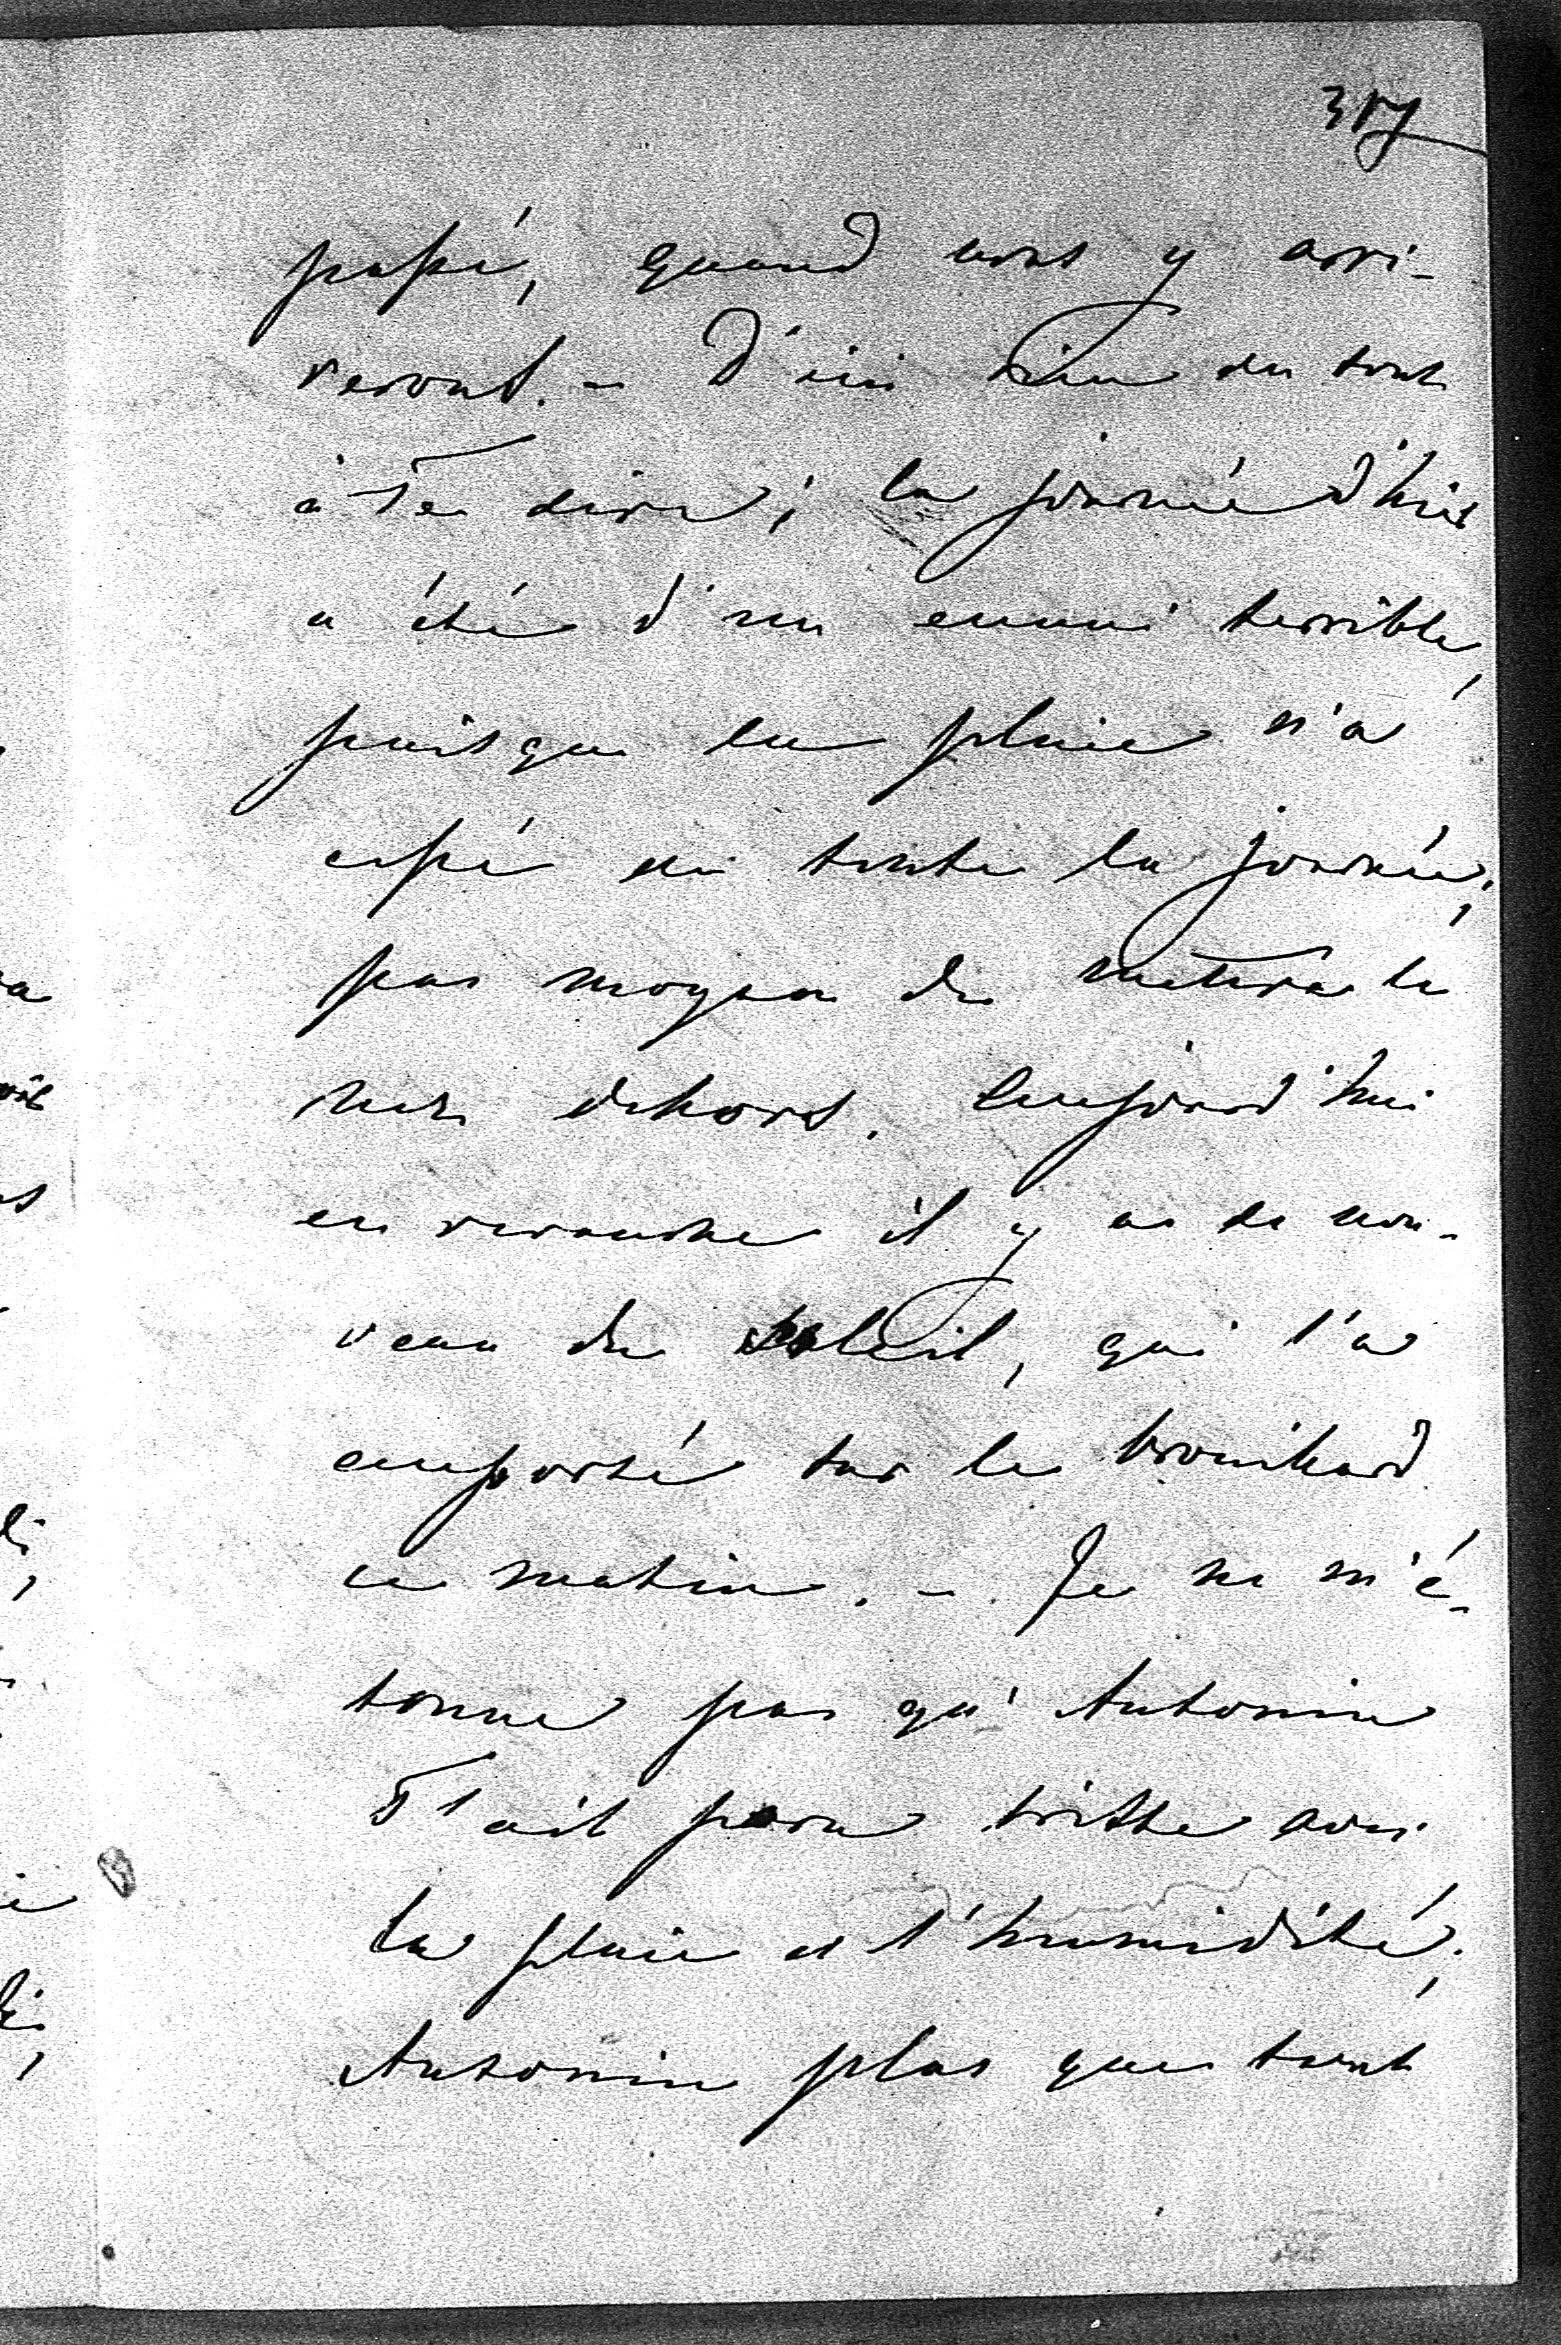 317
passé, quand vous y arri-
veront. - D'ici rien du tout
à Te dire; la journée d'hier
a été d'un ennui terrible,
puisque la pluie n'a
cessé de toute la journée;
pas moyen de mettre le
nez dehors. Aujourd'hui
en revanche il y a de nou-
veau du soleil, qui l'a
emporté sur le brouillard
ce matin. - Je ne m'é-
tonne pas qu'Antonin
T'ait paru triste avec
la pluie et l'humidité;
Antonin plus que tout